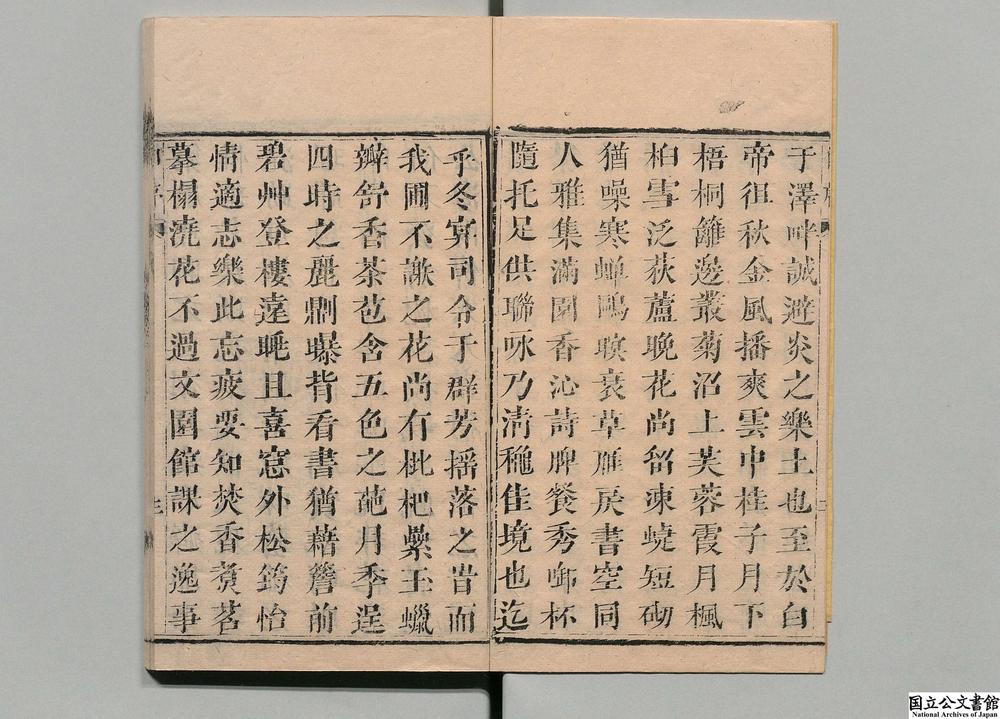 于澤畔誠避炎之樂土也至於白
帝徂秋金風播爽雲中桂子月下
梧桐籬邊叢菊沼上芙蓉霞月楓
柏雪泛荻蘆晚花尚留凍蜨短砌
猶噪寒蟬鷗暝衰草雁戾書空同
人雅集滿園香沁詩脾餐秀啣杯
隨托足供聯咏乃清穐佳境也迄
乎冬寊司令于群芳搖落之旹而
我圃不謝之花尚有枇杷纍玉蠟
瓣舒香茶苞含五色之葩月季逞
四時之麗𠞆曝背看書猶藉簷前
碧艸登樓遠眺且喜窓外松筠怡
情適志樂此忘疲要知焚香煑茗
摹榻澆花不過文園館課之逸事
国立公文書館
National Archives of Japan